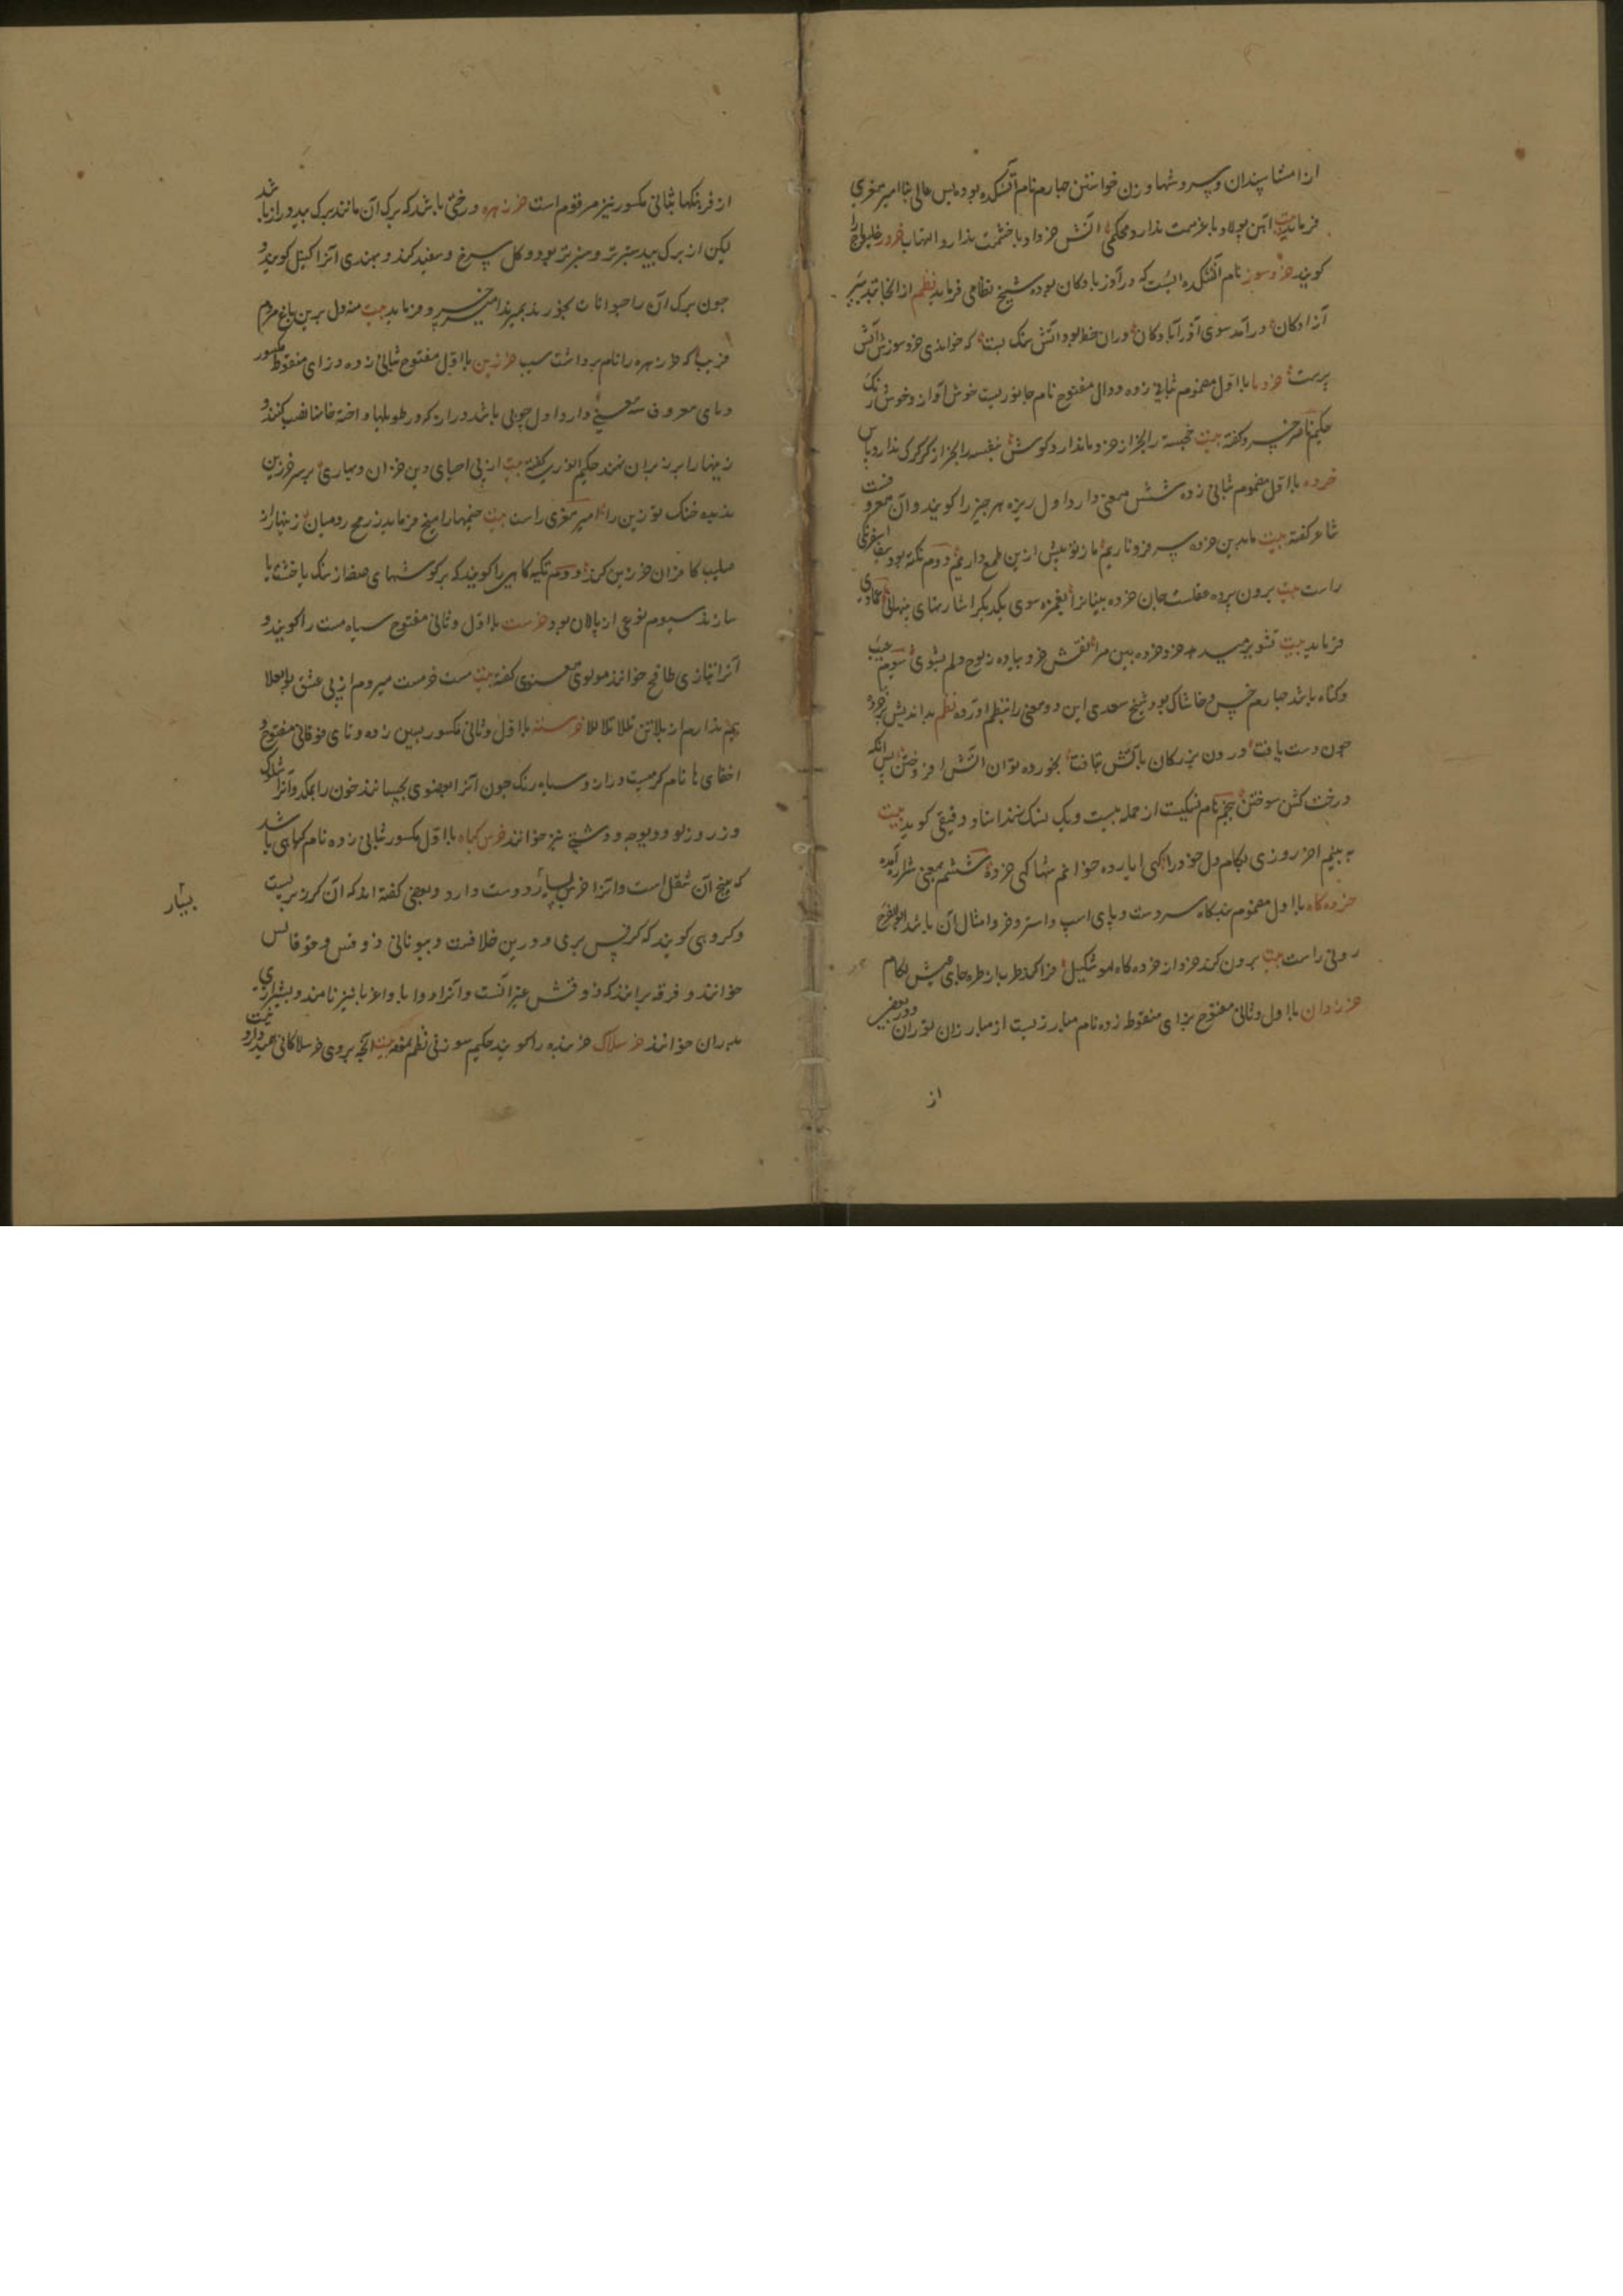 از امشاسپندان و سروشها و زن خواستن چهارم نام آتشکده بوده بس عالی بنا امیر معزی
فرماید بیت آهن پولاد با عزمت ندارد محکمی آتش خرداد با خشمت ندارد التهاب خردر خلیواج را
کویند خردسوز نام آتشکده ایست که در آذربادکان بوده شیخ نظامی فرماید نظم از آنجا بتدبیر
آزادکان درآمد سوی آذرآبادکان در آن خطه بود آتش سنگ بست که خواندی خردسوزش آتش
پرست خردما با اول مضموم ثانی زده و دال مفتوح نام جانوریست خوش آواز و خوش رنک
حکیم ناصر خسرو کفته بیت خجسته را بجز از خردما ندارد کوش بنفشه را بجز از کرکرک ندارد پاس
خرده با اول مضموم ثانی زده شش معنی دارد اول ریزه هر چیز را کویند و آن معروفست
شاعر کفته بیت ما بدین خرده سر فرو ناریم ما ز تو بیش ازین طمع داریم دوم نکته بود سیف اسفرنکی
راست بیت برون پرده عقلست جان خرده بینانرا بغمزه سوی یکدیکر اشارتهای پنهانی عمادی
فرماید بیت تشویر میسد خرد خرده بین مرا نقش خرد بباده ز لوح دلم بشوی سوم عیب
و کناه باشد چهارم خس و خاشاک بود شیخ سعدی این دو معنی را بنظم آورده نظم بداندیش بر خرده
چون دست یافت درون بزرکان بآتش بتافت بخرده توان آتش افروختن پس آنکه
درخت کشن سوختن پنجم نام نسکیست از جمله بیست و یک نسک ژند استا و دقیقی کوید بیت
به بینم آخر روزی بکام دل خود را کهی ایارده خوانم شها کهی خرده ششم بمعنی شرر آمده
خرده کاه با اول مضموم بندکاه سر دست و پای اسپ و استر و خر و امثال آن باشد ابو الفرج
رونی راست بیت برون کند خرد از خرده کاه او شکیل فرا کند طرب از طره جای میش لکام
خرزدان با اول و ثانی مفتوح بزای منقوطه زده نام مبارزیست از مبارزان توران و در بعضی
از
از فرهنکها بثانی مکسور نیز مرقوم است خرزهره درختی باشد که برک آن مانند برک بید دراز باشد
لیکن از برک بید سبزتر و سبزتر بود و کل سرخ و سفید کند و بهندی آنرا کنیل کویند و
چون برک آن را حیوانات بخورند بمیرند امیر خسرو فرماید بیت منه دل برین باغ مردم
فریب که خرزهره را نام برداشت سیب خرزین با اول مفتوح ثانی زده و زای منقوط مکسور
و یای معروف سه معنی دارد اول چوبی باشد دراز که در طویلها و اخته خانها نصب کنند و
زینها را بر زبر آن نهند حکیم انوری کفته بیت از پی احیای دین خزان و بهاری بر سر خرزین
ندیده خنک تو زین را امیر معزی راست بیت خیمها را میخ فرماید ز رمح رومیان زینها را از
صلیب کافران خرزین کند دوم تکیه کاهی را کویند که بر کوشهای صفه از سنک یا خشت بسازند
سازند سیوم نوعی از پالان بود خرست با اول و ثانی مفتوح سیاه مست را کویند و
آنرا بتازی طافح خوانند مولوی معنوی کفته بیت مست خرست میروم از پی عشق بوالعلا
بیم ندارم از بلا تن تللا تلا للا خرسته با اول و ثانی مکسور بسین زده و تای فوقانی مفتوح و
اخفای ها نام کرمیست دراز و سیاه رنک چون آنرا بعضوی بچسپانند خون را بمکد و آنرا شلوک
و زرو و زلو و دیوچه و دشتی نیز خوانند خرس کیاه با اول مکسور ثانی زده نام کیاهی باشد
که بیخ آن شقل است و آنرا خرس بسیار دوست دارد و بعضی کفته اند که آن کزر بریست
و کروهی کویند که کرفس بری و درین خلافست و بیونانی ذوفس و حوقالس
خوانند و فرقه برانند که ذوقنس غیر آنست و آنرا دوایا و اعزیا نیز نامند و بشیرازی
بدران خوانند خرسلاک خربنده را کویند حکیم سوزنی نظم نموده بیت آنچه بروی خرسلاکانی عبید و داودنت
بسیار